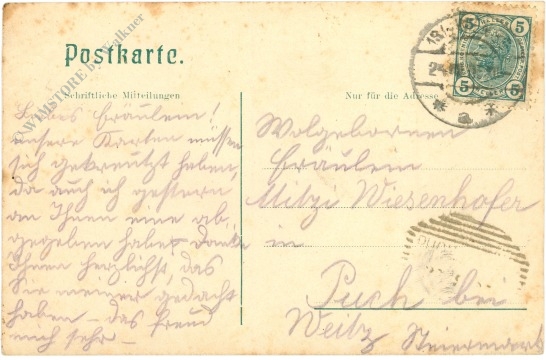 Postkarte.
Schriftliche Mitteilungen
Nur für die Adresse
Liebes Fräulein!
unsere Karten müssen
sich gekreutzt haben,
da auch ich gestern
an Ihnen eine ab,
gegeben habe. Danke
Ihnen herzlichst, das
Sie meiner gedacht
haben – das freud
mich sehr –
Wolgeboren
Fräulein
Mitzi Wiesenhofer
in
Puch bei
Weitz Steiermark
5 5
5 5
WIMSTORE by Walkner